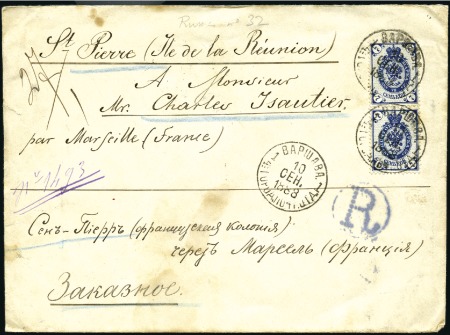 St Pierre (Ile de la Réunion)
A Monsieur
Mr. Charles Isautier.
par Marseille (France)
ВАРШАВА
10
СЕН.
1883
R
Сенъ-Пьерръ (французская колонія)
черезъ Марсель (Франція)
Заказное